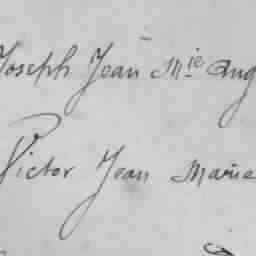 Joseph Jean Mie Aug
Victor Jean Marie